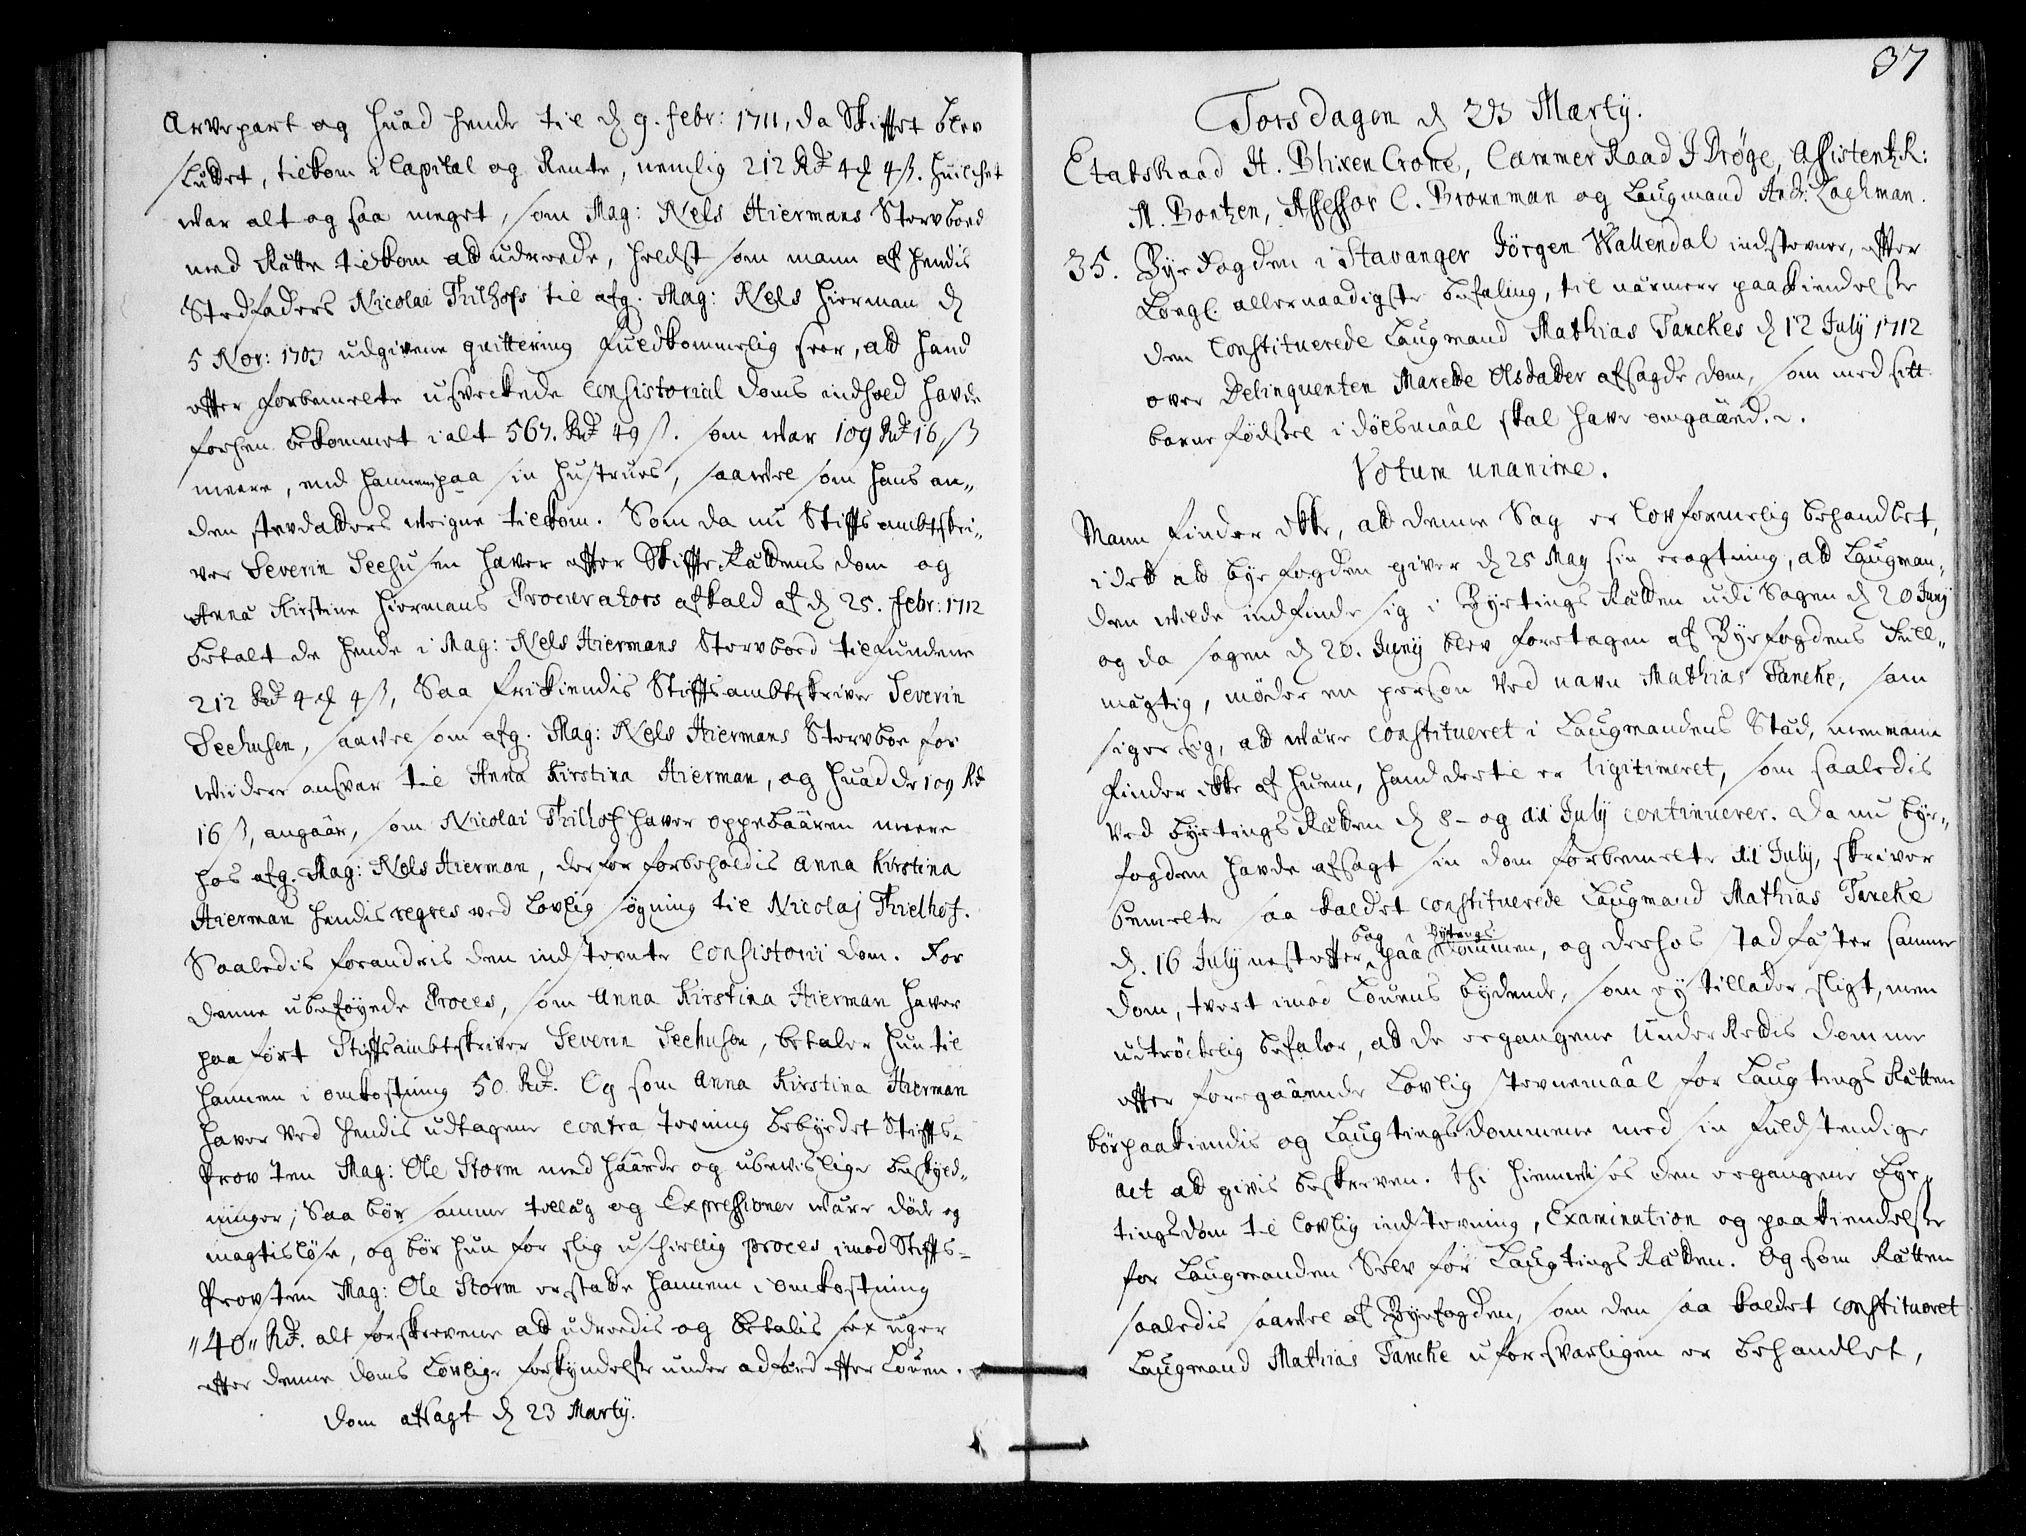 Arvepart og huad hende til d 9. febr: 1711, da Skifftet blev
sluttet, tilkom i Capital og Rente, nemlig 212 Rd 4 ß. huilchet
war alt og saa meget, som Mag: Nels Hiermans Stervboed
med Rætte tilkom at udreede, heldst som mann af hendis
Stedfaders Nicolai Thilhofs til afg. Mag: Nels Hierman d
5 Nov: 1703 udgivene qvittering fuldkommelig seer, at hand
effter forbemelte usvechede Consistorial doms indhold hafde
forhen bekommet i alt 567. Rd 49 ß. som war 109 Rd 16 ß
meere, end hannem paa sin hustrues, saavel som hans an„
den stevdatters weigne tilkom. Som da nu Stiffts ambtskri„
ver Severin Seehusen haver effter Skiffte Rættens dom og
Anna Kirstine Hiermans Procurators afkald af d 25. febr: 1712
betalt de hende i Mag: Nels Hiermans Stervboed tilfundene
212 Rd 4 ß, Saa frikiendis Stifftsambtskriver Severin
Seehusen, saavel som afg. Mag: Nels Hiermans Stervboe for
widere ansvar til Anna Kirstina Hierman, og huad de 109 Rd
16 ß, angaar, som Nicolai Thilhof haver oppebaaren meere
hos afg. Mag: Nels Hierman, derfor forbeholdis Anna Kirstina
Hierman hendis regres ved Lovlig søgning til Nicolaj Thielhof.
Saaledis forandris den indstevnte Consistorii dom. For
denne ubeføyede Proces, som Anna Kirstina Hierman haver
paa ført Stiftsambtskriver Severin Seehusen, betaler hun til
hannem i omkostning 50. Rd. Og som Anna Kirstina Hierman
haver ved hendis udtagene contra stevning bebyrdet Stiffts-
Provsten Mag: Ole Storm med haarde og ubevislige beskyld„
ninger; Saa bør samme tillæg og Expressioner være døde og
magtisløse, og bør hun for slig uschiellig proces imod Stiffts-
Provsten Mag: Ole Storm erstatte hannem i omkostning
„40„ Rd. alt forskrevene at udreedis og betalis sex uger
effter denne doms Lovlige forkyndelse under adferd effter Loven.
Dom afsagt d 23 Marty.
37
Torsdagen d 23 Marty.
Etatskaad H. Blixen Crone, Cammer Raad J Drøge, Assistentz R:
M. Bentzen, Assessor C. Brornman og Laugmand And: Lachman.
35. Byefogden i Stavanger Jørgen Wallendal indstevner, effter
Kongl. allernaadigste befaling, til nærmere paakiendelse
den Constituerede Laugmand Mathias Tanckes d 12 July 1712
over Delinqventen Marette Olsdatter afsagde dom, som med sitt
barne fødssel i døelsmaal skal have omgaaed.
Votum unanime.
Mann finder ikke, at denne Sag er lovformelig behandlet,
idet at byefogden giver d 25 May sin eragtning, at Laugman„
den wilde indfinde sig i Byetings Rætten udi Sagen d 20 Juny
og da sagen d 20. Juny blev foretagen af Byefogdens Full„
mægtig, møder en person ved navn Mathias Tancke, som
siger sig, at være constitueret i Laugmandens Sted, men mann
finder ikke af huem, hand dertil er ligitimeret, som saaledis
ved byetings Rætten d 8- og dii July continuerer. Da nu bye„
fogden havde afsagt sin dom forbemelte dii July, skriver
bemelte saa kaldet constituerede Laugmand Mathias Tancke
d. 16 July nestefter bag paa Bytings Dommen, og derhos stadfæster samme
dom, tvert imod Lovens bydende, som ey tillader sligt, men
udtrøckelig befaler, at de ergangene Underrettis domme
effter foregaaende Lovlig stevnemaal for Laugtings Retten
bør paakiendis og Laugtings dommene med sin fuldstendige
act at givis beskreven. thi hiemvises den ergangene bye„
tings dom til lovlig indstevning, Examination og paakiendelse
for Laugmanden Selv for Laugtings Rætten. Og som Rætten
saaledis saavel af Byefogden, som den saa kaldet constitueret
Laugmand Mathias Tancke uforsvarligen er behandlet,